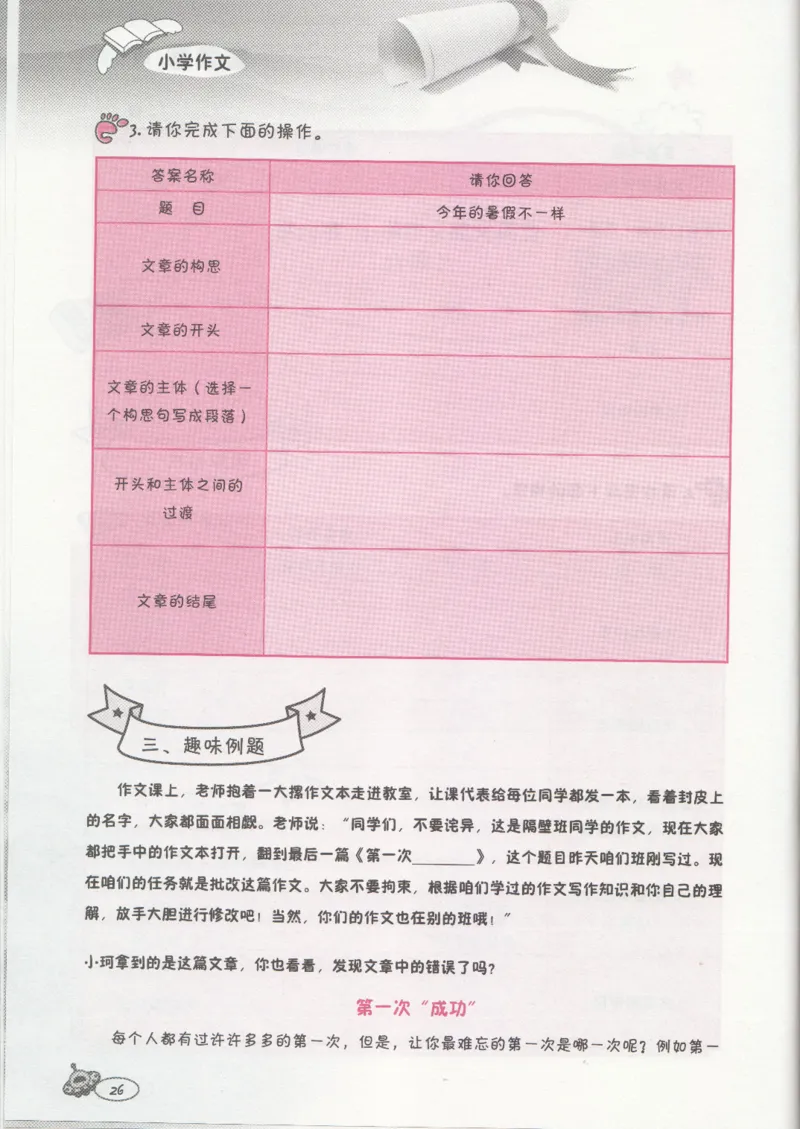 小学作文
3.请你完成下面的操作。
答案名称 请你回答
题 目 今年的暑假不一样
文章的构思
文章的开头
文章的主体(选择一
个构思句写成段落)
开头和主体之间的
过渡
文章的结尾
三、趣味例题
作文课上,老师抱着一大摞作文本走进教室,让课代表给每位同学都发一本,看着封皮上
的名字,大家都面面相觑。老师说:“同学们,不要诧异,这是隔壁班同学的作文,现在大家
都把手中的作文本打开,翻到最后一篇《第一次________》,这个题目昨天咱们班刚写过。现
在咱们的任务就是批改这篇作文。大家不要拘束,根据咱们学过的作文写作知识和你自己的理
解,放手大胆进行修改吧!当然,你们的作文也在别的班哦!”
小珂拿到的是这篇文章,你也看看,发现文章中的错误了吗?
第一次“成功”
每个人都有过许许多多的第一次,但是,让你最难忘的第一次是哪一次呢?例如第一
26